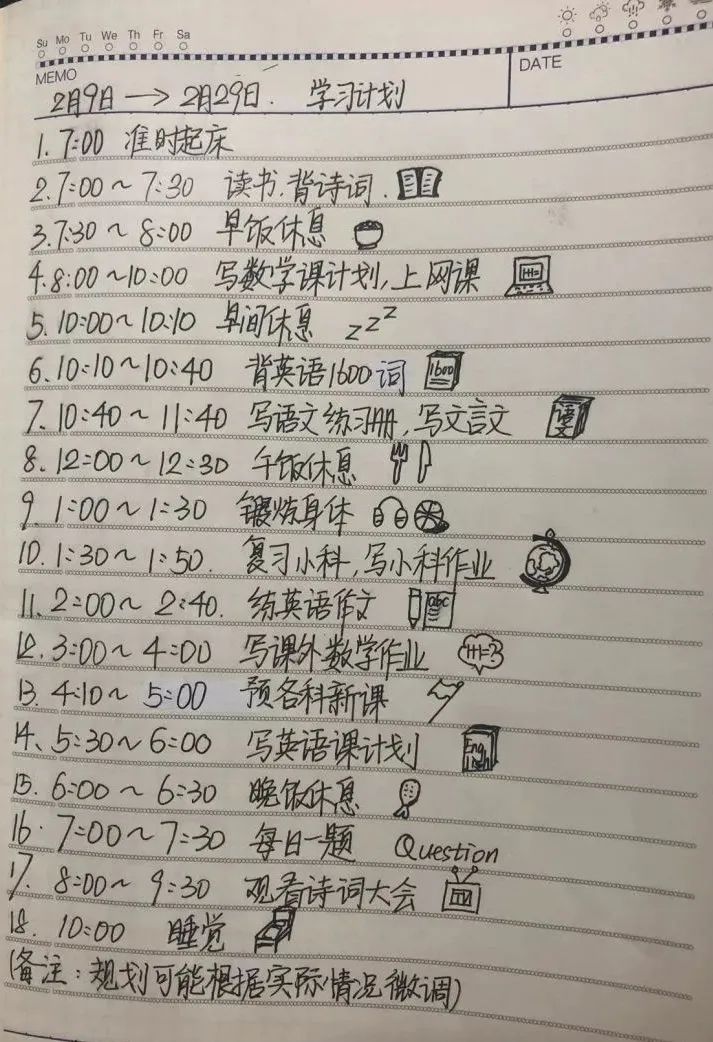 Su Mo Tu We Th Fr Sa
MEMO
DATE
2月9日 → 2月29日. 学习计划
1. 7:00 准时起床
2. 7:00~7:30 读书.背诗词.
3. 7:30~8:00 早饭休息
4. 8:00~10:00 写数学课计划,上网课
5. 10:00~10:10 早间休息 zzz
6. 10:10~10:40 背英语1600词 1600
7. 10:40~11:40 写语文练习册,写文言文 语文
8. 12:00~12:30 午饭休息
9. 1:00~1:30 锻炼身体
10. 1:30~1:50. 复习小科,写小科作业
11. 2:00~2:40. 练英语作文 abc
12. 3:00~4:00 写课外数学作业
13. 4:10~5:00 预各科新课
14、5:30~6:00 写英语课计划 English
15. 6:00~6:30 晚饭休息
16. 7:00~7:30 每日一题 Question
17. 8:00~9:30 观看诗词大会
18. 10:00 睡觉
(备注:规划可能根据实际情况微调)